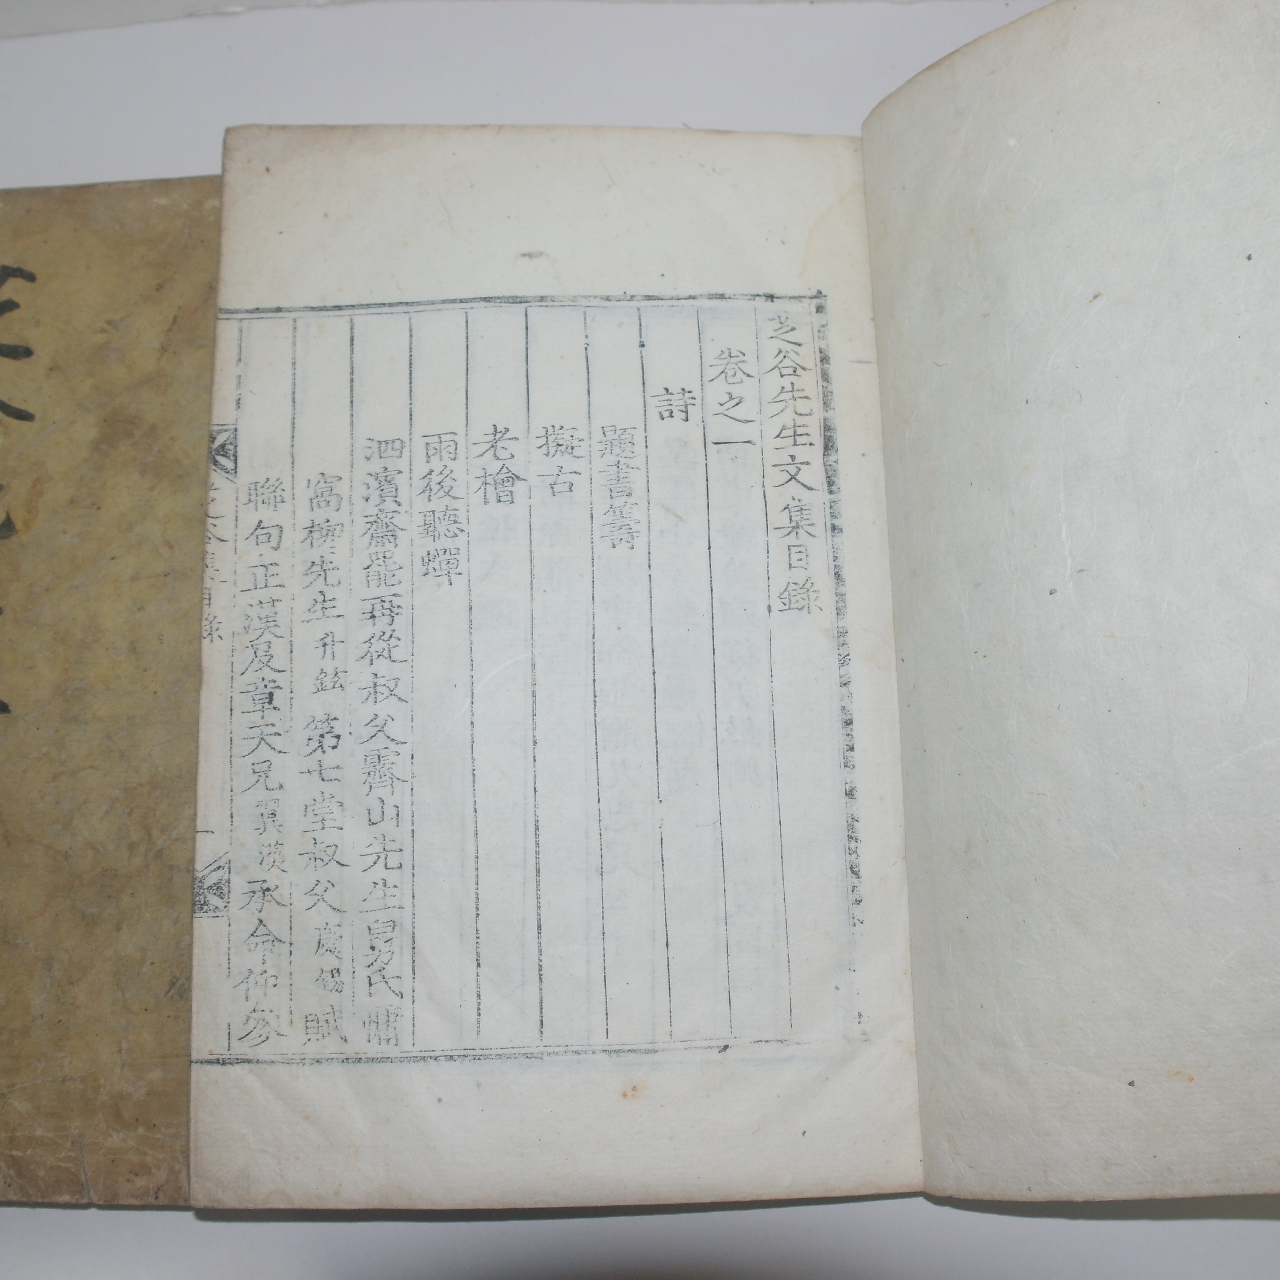 芝谷先生文集目錄
卷之一
詩
題書籌
擬古
老檜
雨後聽蟬
泗濱齋罷再從叔父霽山先生舅氏慵
窩柳先生升鉉第七堂叔父慶錫賦
聯句正漢及章天兄翼漢承命仰參
芝谷集目錄